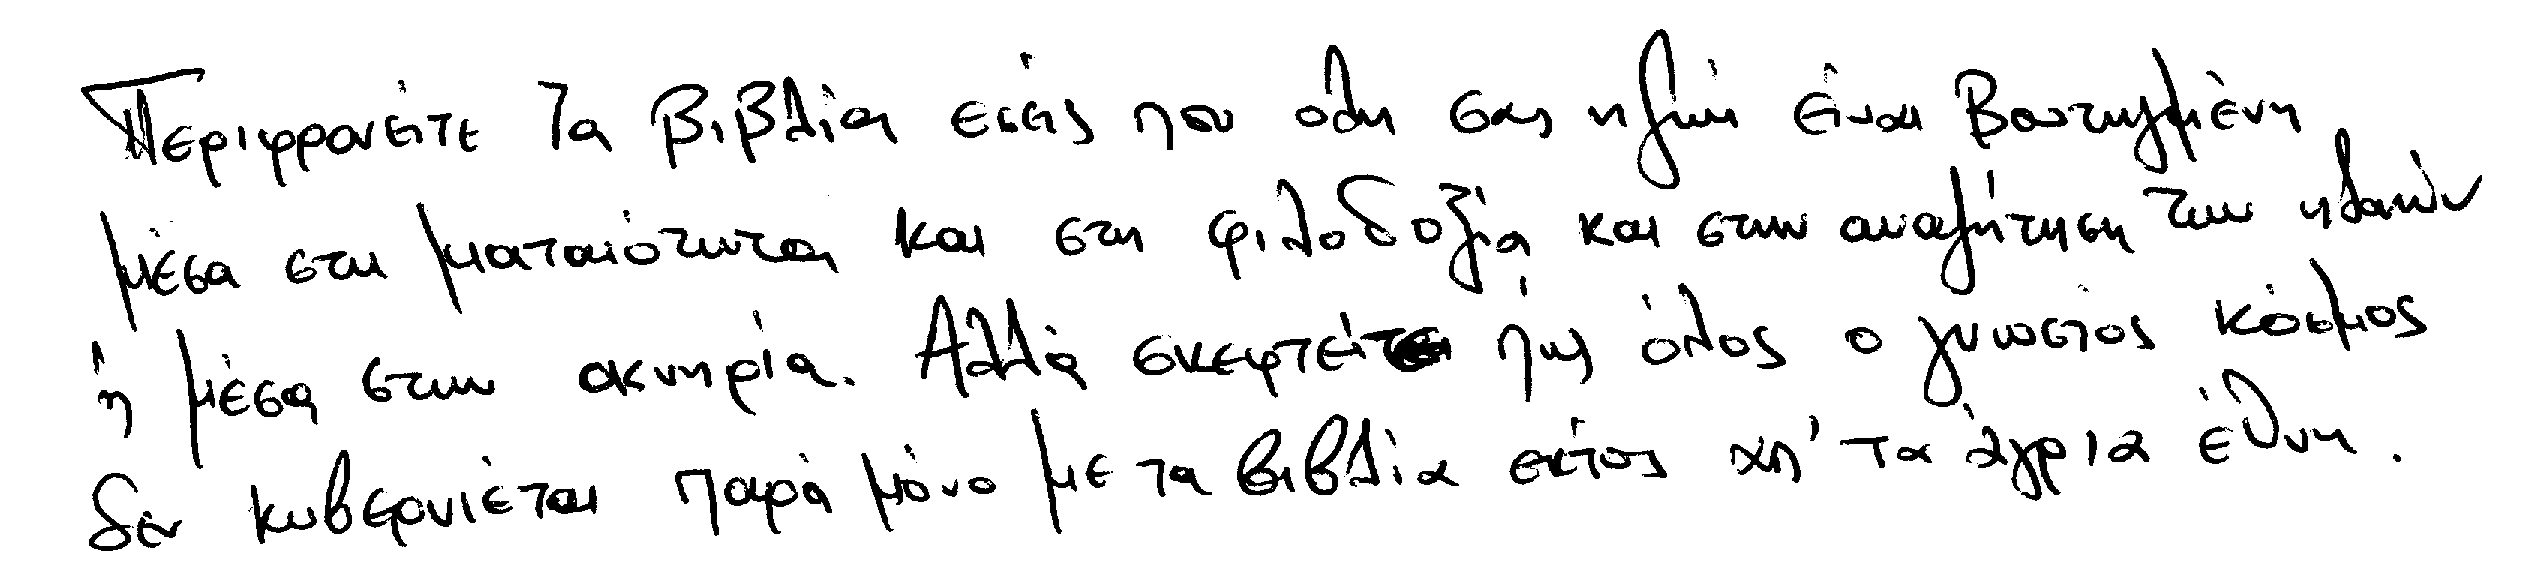 Περιφρονείτε τα βιβλία εσείς που όλη σας η ζωή είναι βουτηγμένη
μέσα στη ματαιότητα και στη φιλοδοξία και στην αναζήτηση των ηδονών
ή μέσα στην οκνηρία. Αλλά σκεφτείτε πως όλος ο γνωστός κόσμος
δεν κυβερνιέται παρά μόνο με τα βιβλία εκτός απ' τα άγρια έθνη.